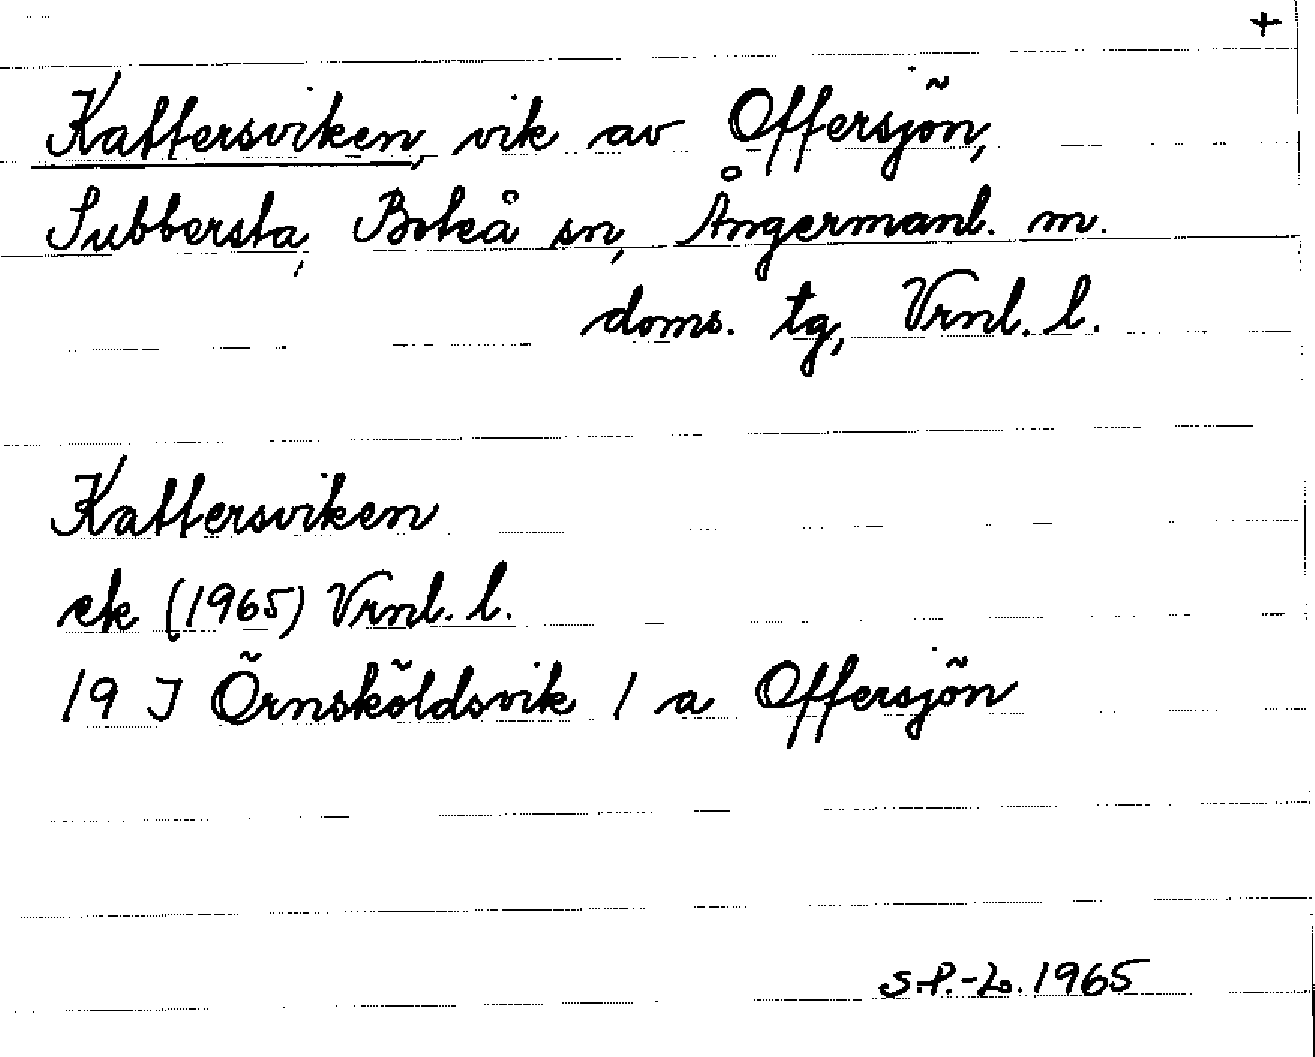 +
Kattersviken, vik av Offersjön,
Subbersta, Boteå sn, Ångermanl. m.
doms. tg, Vrnl. l.
Kattersviken
ek (1965) Vrnl. l.
19 J Örnsköldsvik 1 a Offersjön
S.P.-L. 1965